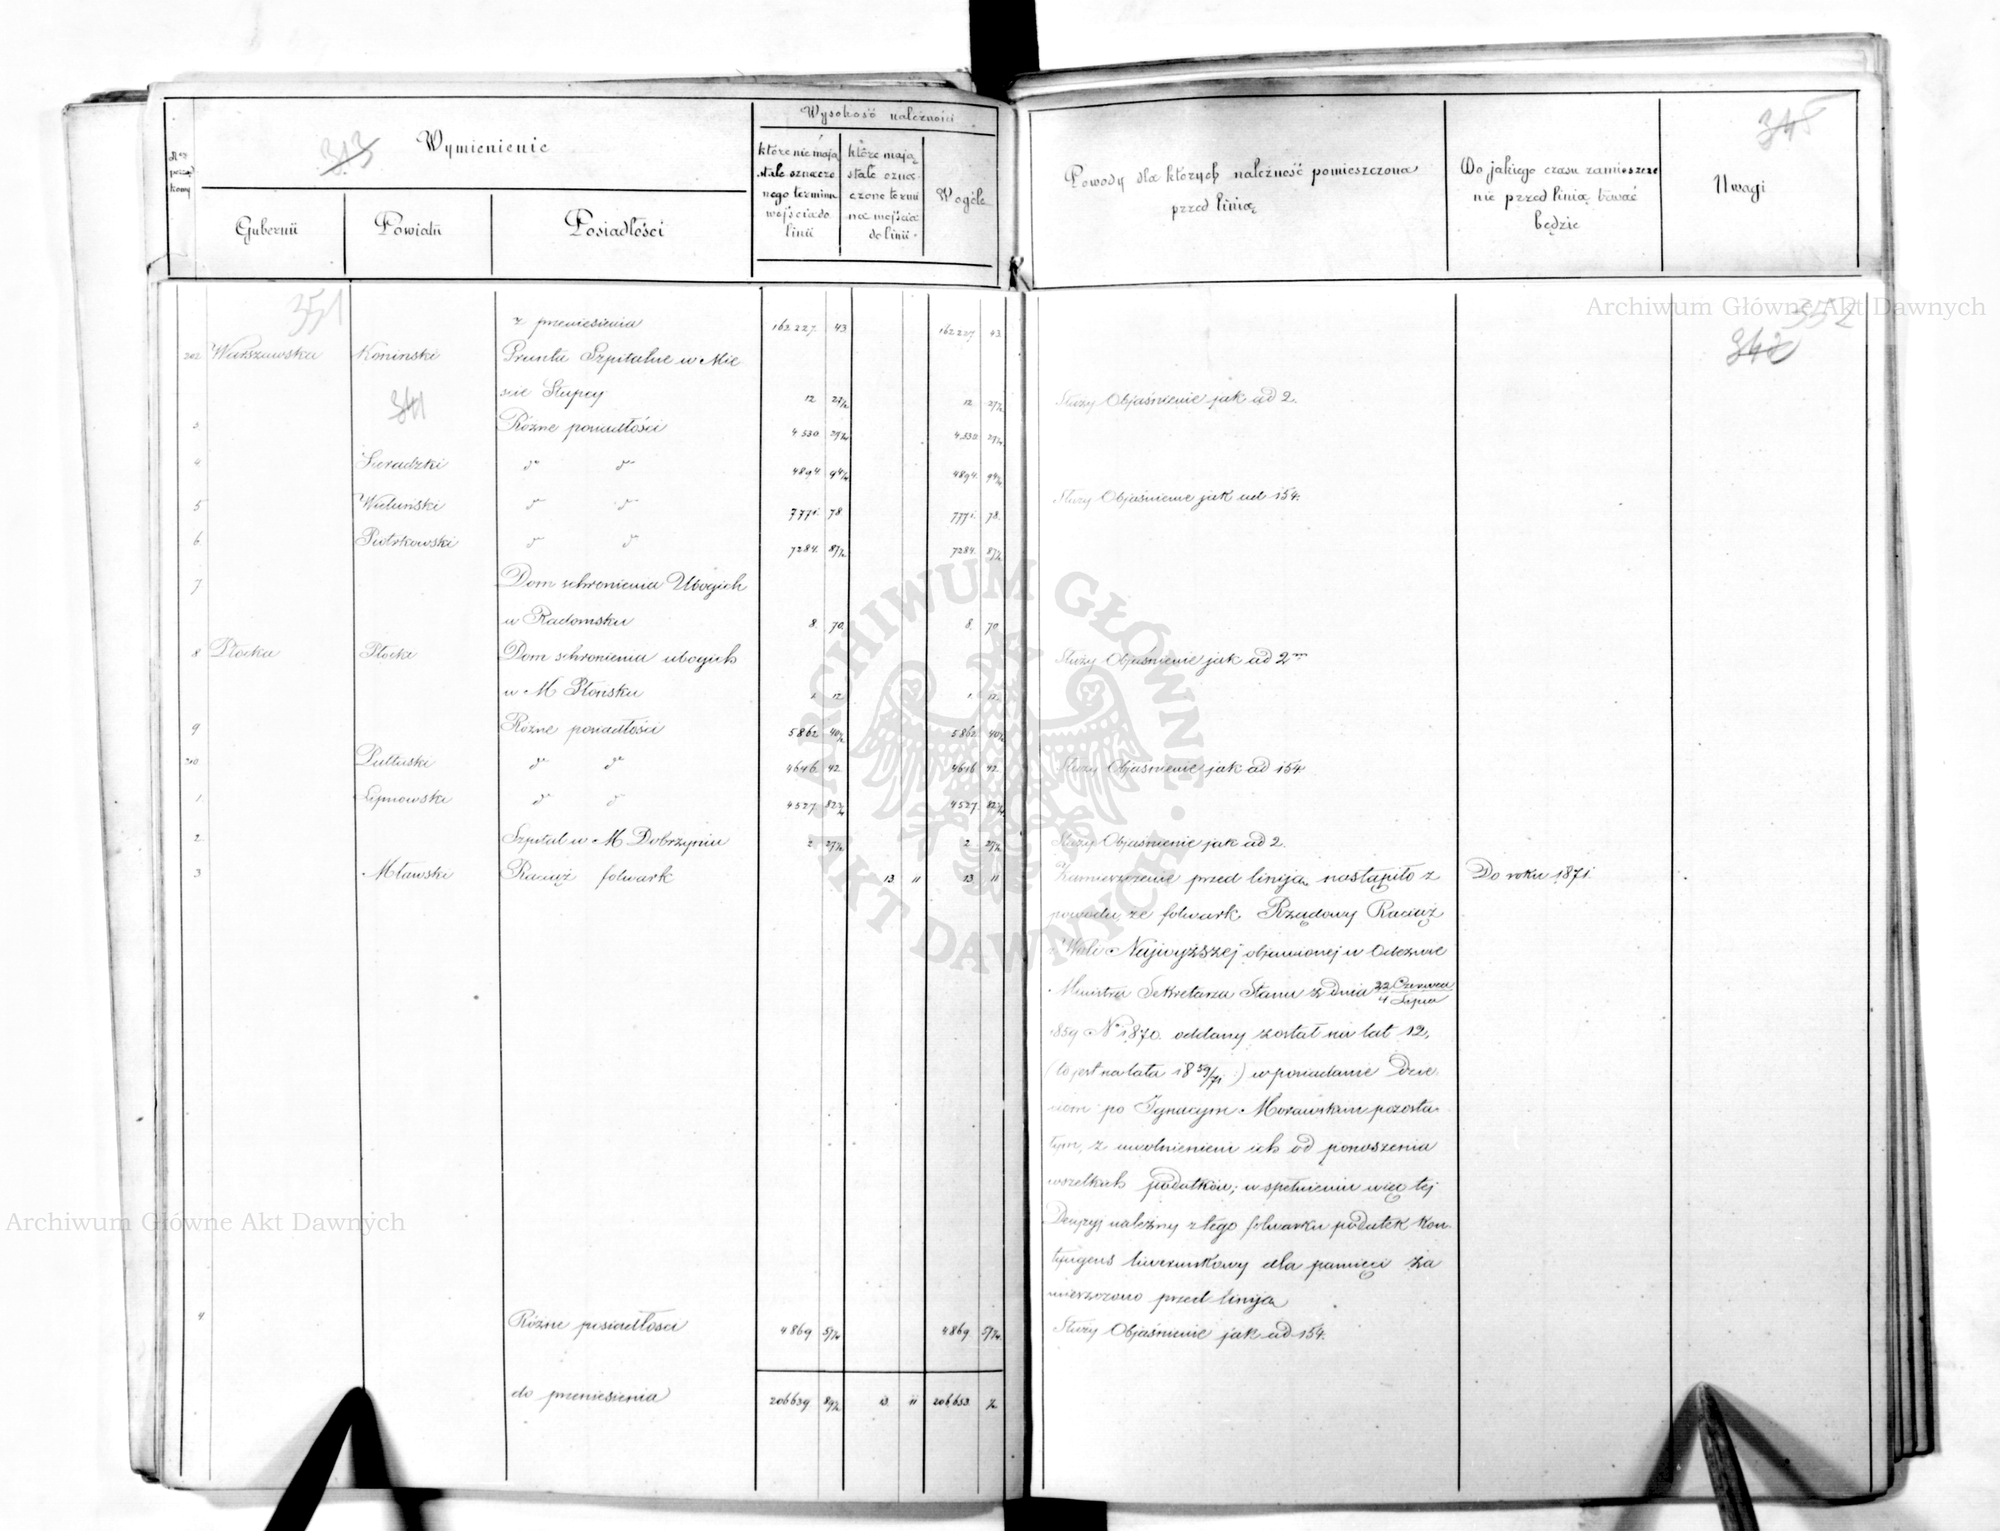 Archiwum Główne Akt Dawnych
Nr porządkowy
313
Wymienienie
Gubernii
Powiatu
Posiadłości
Wysokość należności
które nie mają stale oznaczonego terminu wejścia do linii
które mają stale oznaczone termina wejścia do linii
Wogóle
345
Powody dla których należność pomieszczona
przed linią
Do jakiego czasu zamieszcze
nie przed linią trwać
będzie
Uwagi
351
352
341
z przeniesienia 162227. 43 162227. 43
202 Warszawska Koninski Grunta Szpitalne w Mie
scie Słupcy 12 27½ 12 27½ Służy Objaśnienie jak ad 2.
3 Różne posiadłości 4530 4530
4 Sieradzki do do 4894. 4894.
5 Wieluński do do 7771. 78 7771. 78. Służy Objaśnienie jak ad 154.
6. Piotrkowski do do 7284. 87½ 7284. 87½
7 Dom schronienia Ubogich
w Radomsku 8. 70. 8. 70
8 Płocka Płocki Dom schronienia ubogich Służy Objaśnienie jak ad 2
w M Płońsku 1. 12 1. 12.
9 Różne posiadłości 5862 40½ 5862 40½
210 Pułtuski do do 4646. 42. 4646 42. Służy Objaśnienie jak ad 154
1. Lipnowski do do 4527 4527
2 Szpital w M Dobrzyniu 2 27½ 2 27½ Służy Objaśnienie jak ad 2.
3 Mławski Raciąż folwark 13. 11 13 11 Zamieszczenie przed liniją nastąpiło z Do roku 1871.
powodu, że folwark Rządowy Raciąż
z Woli Najwyższej objawionej w Odezwie
Ministra Sekretarza Stanu z dnia 22 Czerwca / 4 Lipca
1859 No 1870. oddany został na lat 12,
(to jest na lata 18 59/71 :) w posiadanie Dzie
ciom po Ignacym Morawskim pozosta
łym, z uwolnieniem ich od ponoszenia
wszelkich podatków; w spełnieniu więc tej
Decyzyi należny z tego folwarku podatek Kon
tyngens liwerunkowy dla pamięci za
mieszczono przed liniją
4 Różne posiadłości 4869 4869. Służy Objaśnienie jak ad 154.
do przeniesienia 206639 89½ 13. 11 206653. ½
Archiwum Główne Akt Dawnych
ARCHIWUM GŁÓWNE AKT DAWNYCH